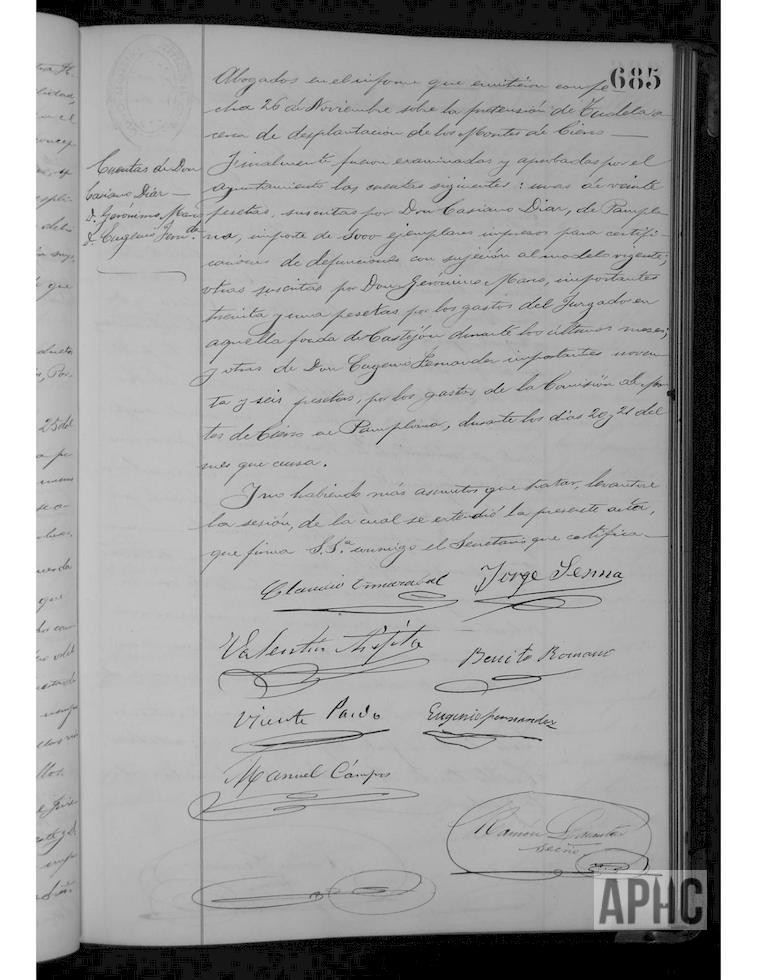 685
Abogados en el informe que emitieron con fe
cha 26 de Noviembre sobre la pretensión de Tudela a
cerca de desplantación de los Montes de Cierzo —
Cuentas de Don
Casiano Diaz —
D. Gerónimo
D. Eugenio Fern.dz
Finalmente fueron examinadas y aprobadas por el
ayuntamiento las cuentas siguientes: unas de veinte
pesetas, suscritas por Don Casiano Diaz, de Pamplo
na, importe de ejemplares impresos para certifi
caciones de defunciones con sujeción al modelo vigente;
otras suscritas por Don Gerónimo importantes
treinta y una pesetas por los gastos del Juzgado en
aquella fonda de Castejón durante los últimos meses;
y otras de Don Eugenio Fernandez importantes noven
ta y seis pesetas, por los gastos de la Comisión de Mon
tes de Cierzo en Pamplona, durante los días 20 y 21 del
mes que cursa.
Y no habiendo más asuntos que tratar, levantose
la sesión, de la cual se extendió la presente acta,
que firma S.Sª. conmigo el Secretario que certifica —
Claudio Jorge Sesma
Valentín Benito Romano
Vicente Pardo Eugenio Fernandez
Manuel Campos
Ramón
Secrio
APHC